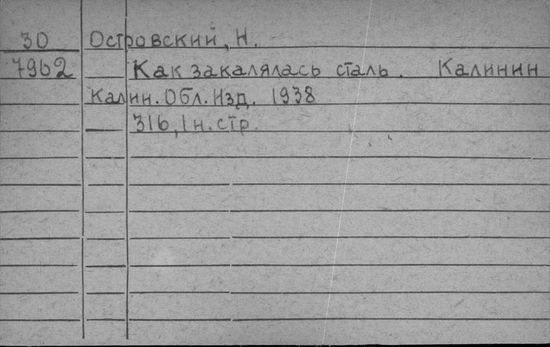 30 Островский, Н.
7962 Как закалялась сталь. Калинин
Калин. Обл. Изд. 1938
316, 1 н. стр.